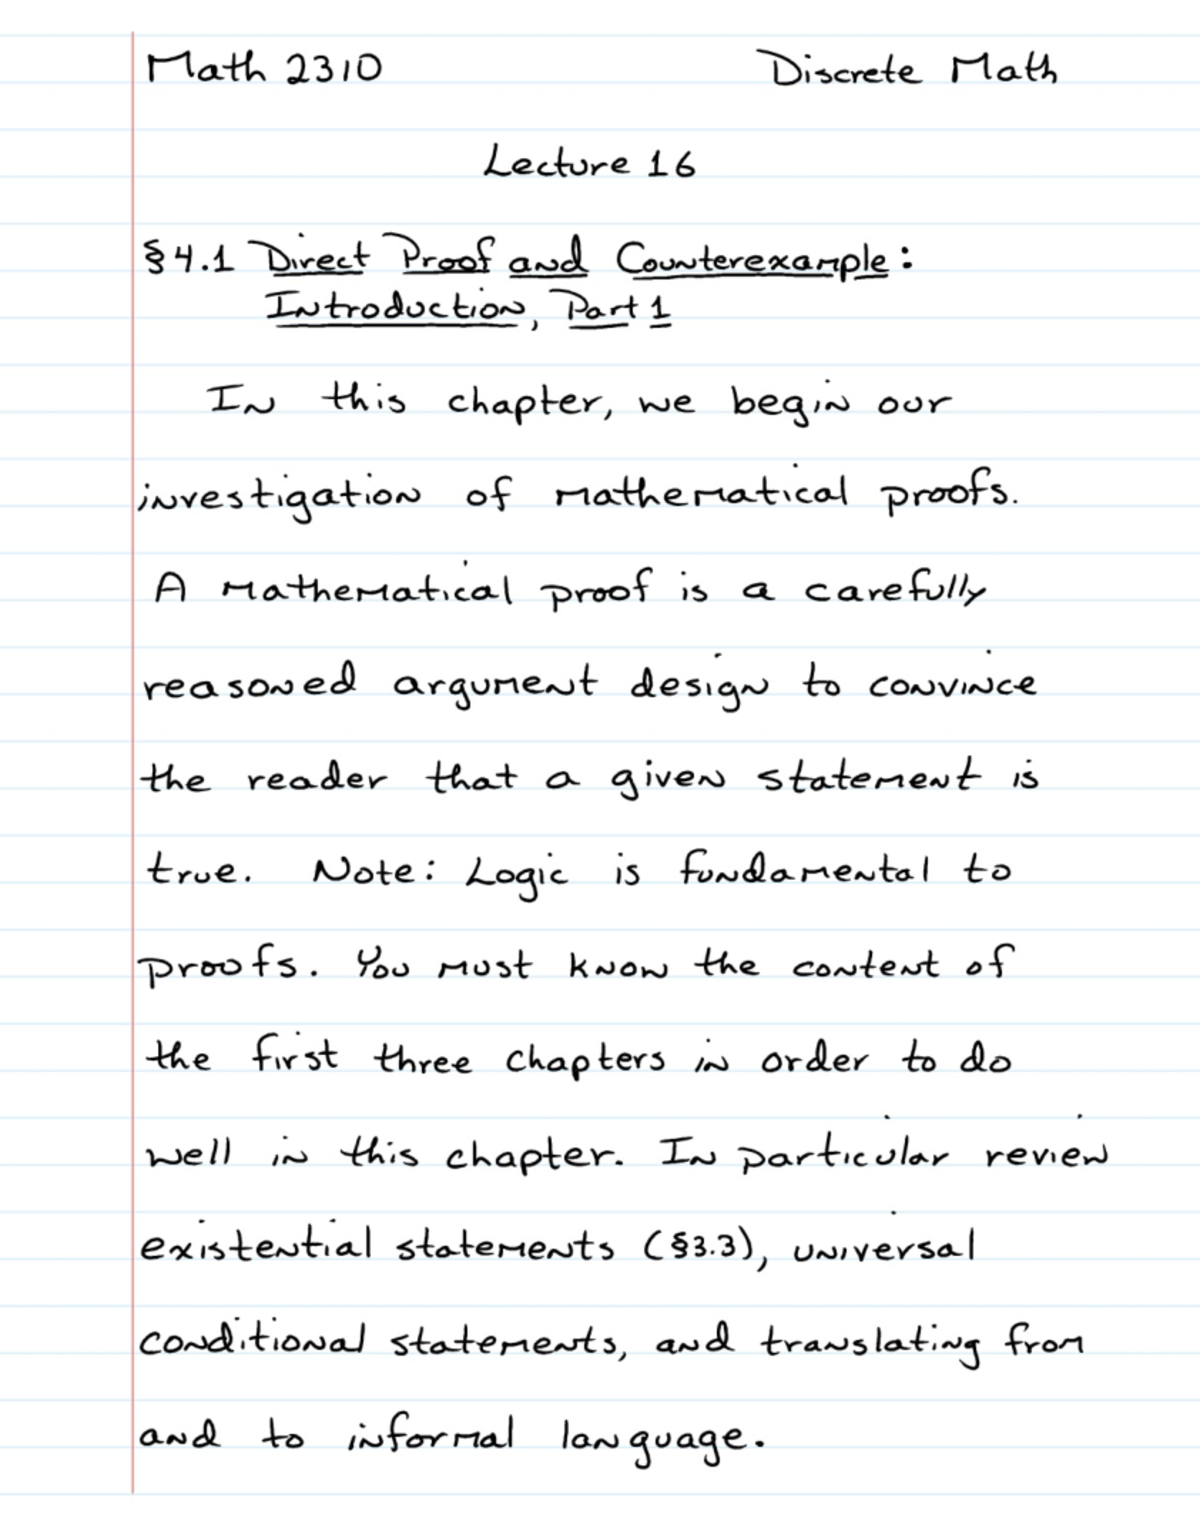 Math 2310 Discrete Math
Lecture 16
§4.1 Direct Proof and Counterexample:
Introduction, Part 1
In this chapter, we begin our
investigation of mathematical proofs.
A mathematical proof is a carefully
reasoned argument design to convince
the reader that a given statement is
true. Note: Logic is fundamental to
proofs. You must know the content of
the first three chapters in order to do
well in this chapter. In particular review
existential statements (§3.3), universal
conditional statements, and translating from
and to informal language.